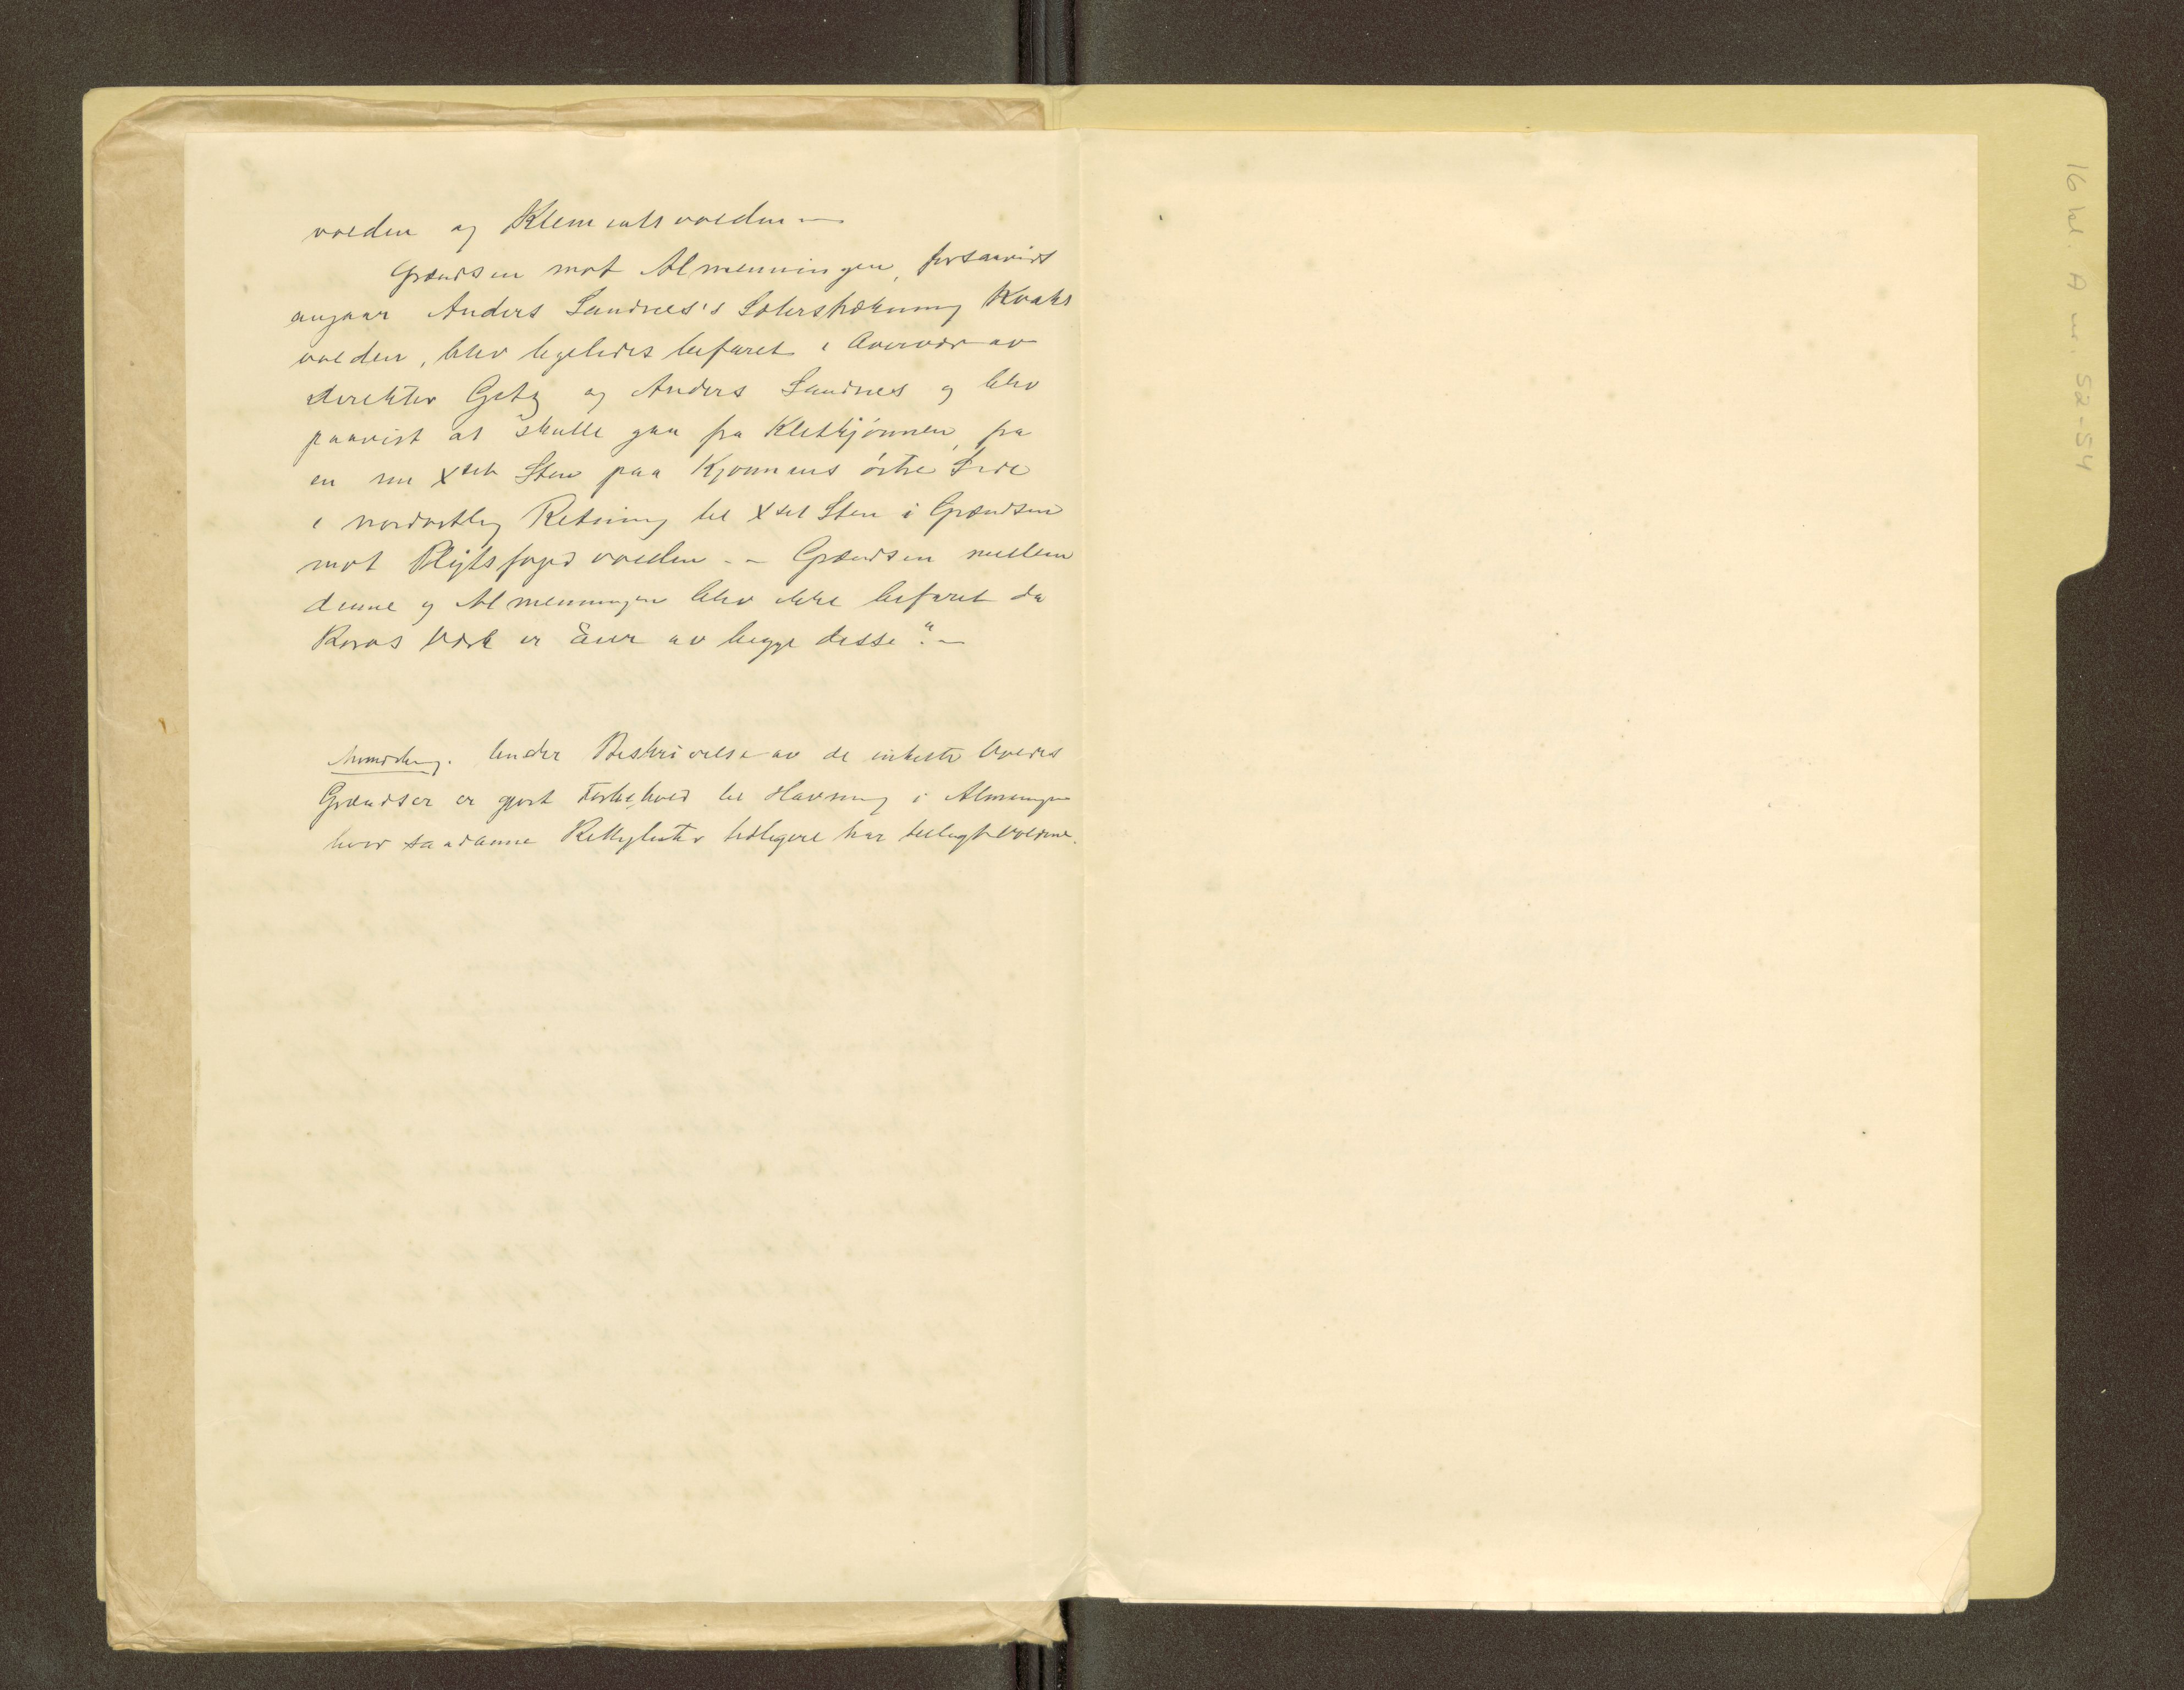 volden og Klementsvolden —
Grændsen mot Almenningen, forsaavidt
angaar Anders Sandnes's Sæterstrækning Kvaks
volden, blev ligeledes befaret i Overvær av
Direktør Getz og Anders Sandnes og blev
paavist at skulle gaa fra Kletkjønnen, fra
en nu Xset Sten paa Kjønnens østre Side
i nordostlig Retning til Xset Sten i Grændsen
mot Plytsfogdvolden. — Grændsen mellem
denne og Almenningen blev ikke befaret da
Røros Værk er Eier av begge disse". —
Anmerkng. Under Beskrivelse av de enkelte Voldes
Grændser er gjort Forbehold til Havning i Almenningen
hvor saadanne Rettigheter tidligere har tillagt Voldene.
16 kl. A nr. 52-54